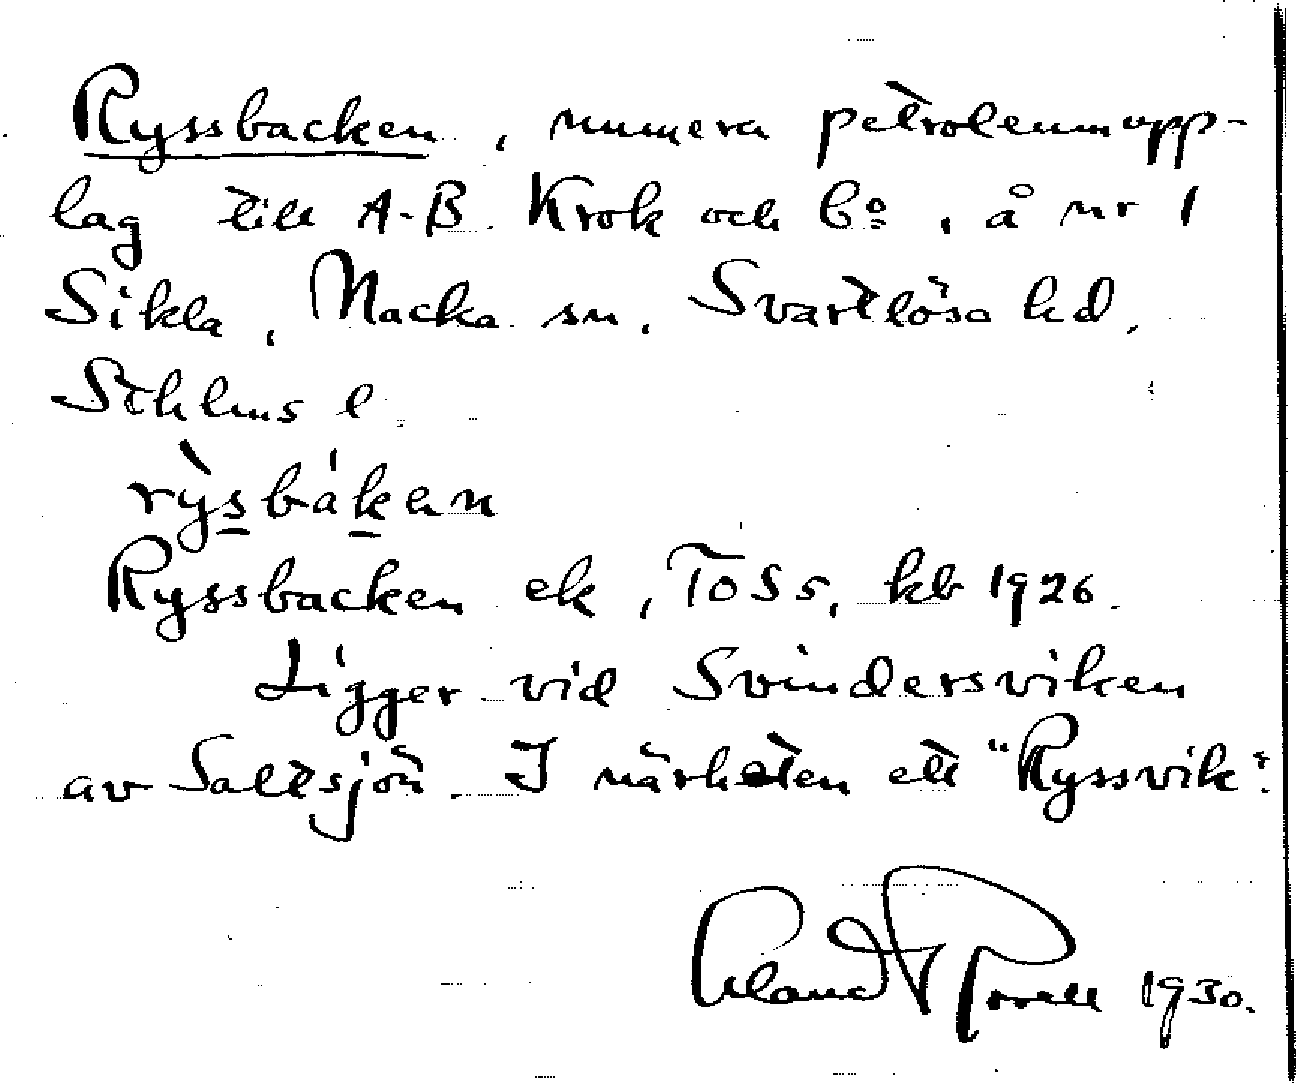 Ryssbacken, numera petroleumupp-
lag till A-B. Krok och Co, å nr 1
Sikla, Nacka sn. Svartlösa hd,
Sthlms l.
rỳsbákan
Ryssbacken ek, ToSs, kb 1926.
Ligger vid Svindersviken
av Saltsjön. I närheten ett "Ryssvik".
1930.